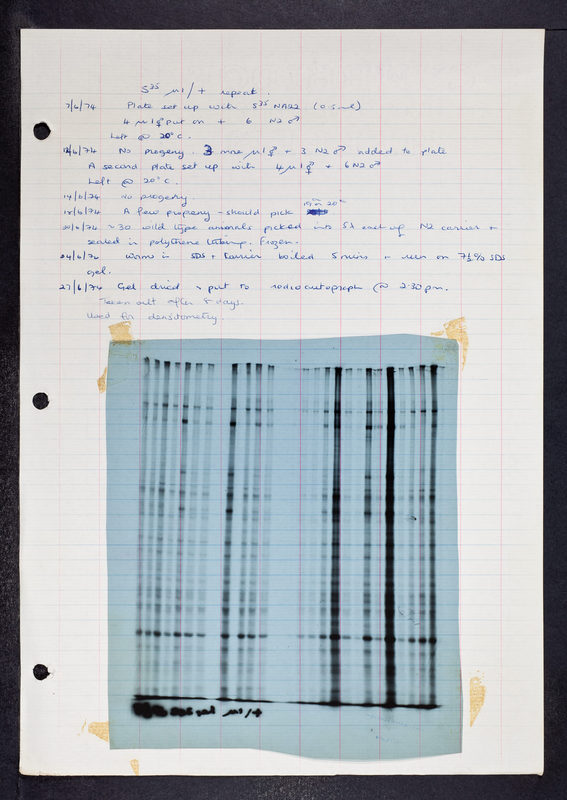 S³⁵ μ1/+ repeat.
7/6/74 Plate set up with S³⁵ NA22 (0.5ml)
4 μ1 ⚥ put on + 6 N2 ♂
Left @ 20°C.
/6/74 No progeny. 3 more μ1 ⚥ + 3 N2 ♂ added to plate
A second plate set up with 4 μ1 ⚥ + 6 N2 ♂
Left @ 20°C.
14/6/74 No progeny.
18/6/74 A few progeny - should pick 19th 20th
20/6/74 ~30 wild type animals picked into 5λ each of N2 carrier +
sealed in polythene tubing. Frozen.
24/6/74 Worms in SDS + carrier boiled 5 mins + run on 7½% SDS
gel.
27/6/74 Gel dried + put to radioautograph @ 2:30pm.
Taken out after 5 days.
Used for densitometry.